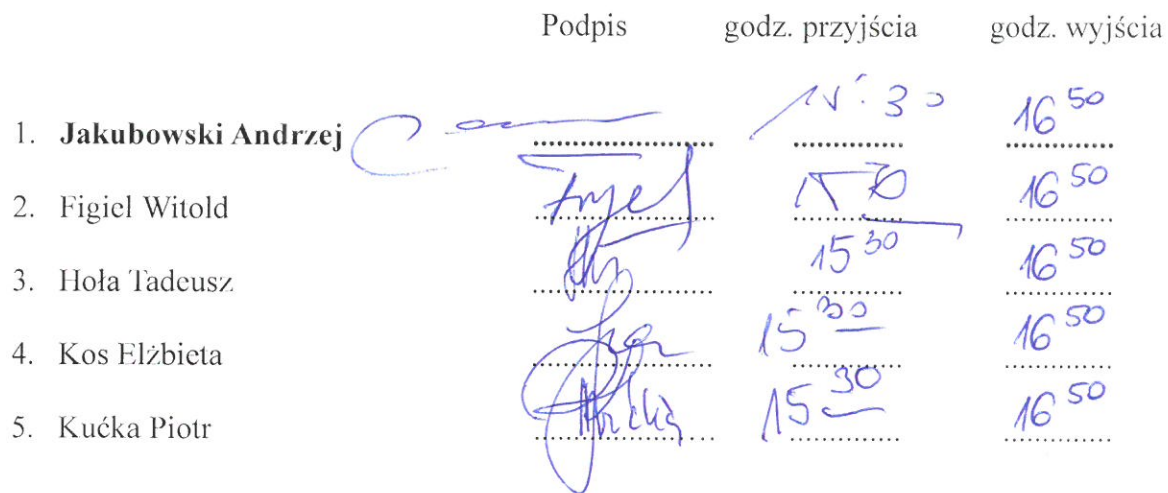 Podpis godz. przyjścia godz. wyjścia
1. Jakubowski Andrzej 15:30 16 50
2. Figiel Witold Figiel 15 30 16 50
3. Hoła Tadeusz 15 30 16 50
4. Kos Elżbieta 15 30 16 50
5. Kućka Piotr 15 30 16 50